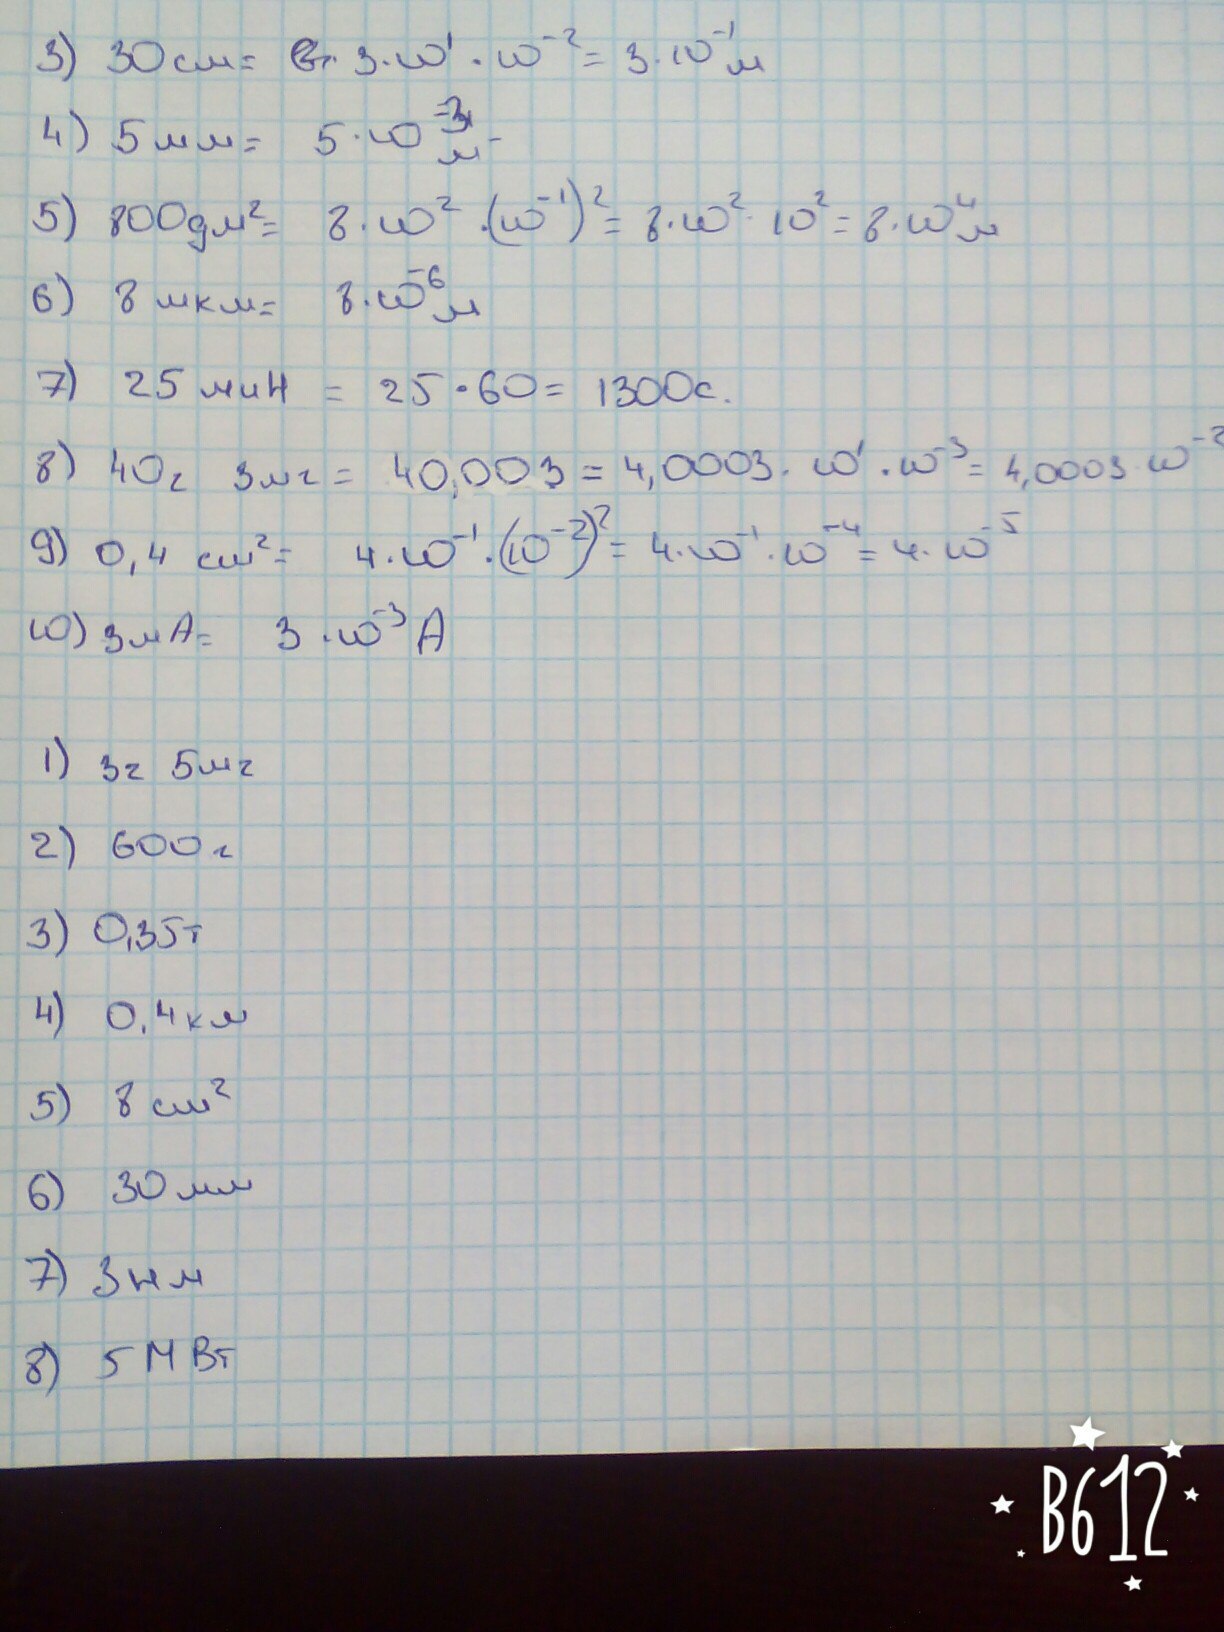 3) 30см= 3·10¹·10⁻²= 3·10⁻¹м
4) 5мм= 5·10⁻³м
5) 800дм²= 8·10²·(10⁻¹)²= 8·10²·10²= 8·10⁴м
6) 8мкм= 8·10⁻⁶м
7) 25 мин = 25·60= 1300с.
8) 40г 3мг= 40,003 = 4,0003·10¹·10⁻³= 4,0003·10⁻²
9) 0,4 см²= 4·10⁻¹·(10⁻²)²= 4·10⁻¹·10⁻⁴= 4·10⁻⁵
10) 3мА= 3·10⁻³А
1) 3г 5мг
2) 600г
3) 0,35т
4) 0,4км
5) 8см²
6) 30мм
7) 3нм
8) 5МВт
B612